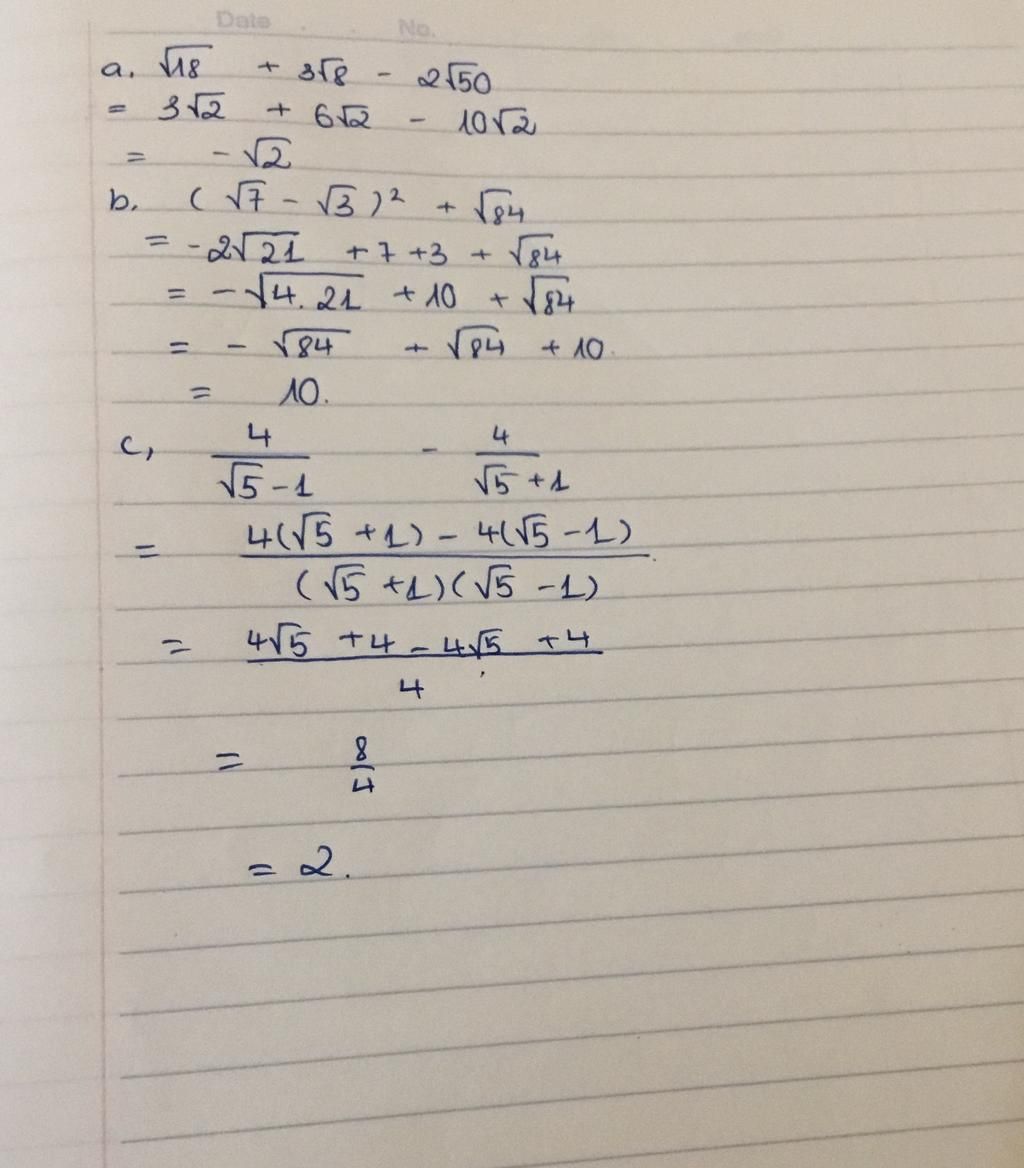 Date . . No.
a. √18 + 3√8 - 2√50
= 3√2 + 6√2 - 10√2
= -√2
b. (√7 - √3)² + √84
= -2√21 + 7 + 3 + √84
= -√4.21 + 10 + √84
= - √84 + √84 + 10.
= 10.
c, 4/(√5 - 1) - 4/(√5 + 1)
= (4(√5 + 1) - 4(√5 - 1))/((√5 + 1)(√5 - 1))
= (4√5 + 4 - 4√5 + 4)/4
= 8/4
= 2.